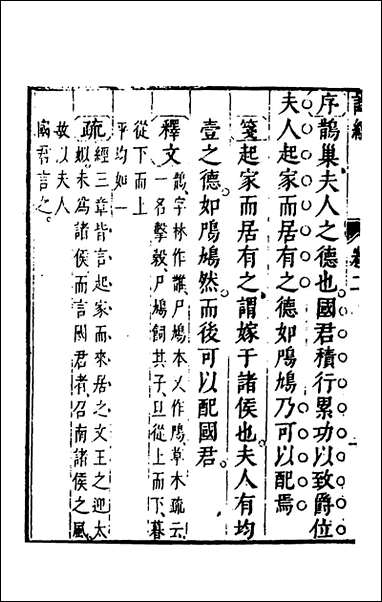 詩經
卷二
一
序鵲巢夫人之德也國君積行累功以致爵位
夫人起家而居有之德如鳲鳩乃可以配焉
箋起家而居有之謂嫁于諸侯也夫人有均
壹之德如鳲鳩然而後可以配國君
釋文鵲字林作䧿尸鳩本又作鳲草木疏云
一名擊榖尸鳩飼其子旦從上而下暮
從下而上
平均如一
疏經三章皆言起家而來居之文王之迎太
姒未為諸侯而言國君者召南諸侯之風
故以夫人
國君言之